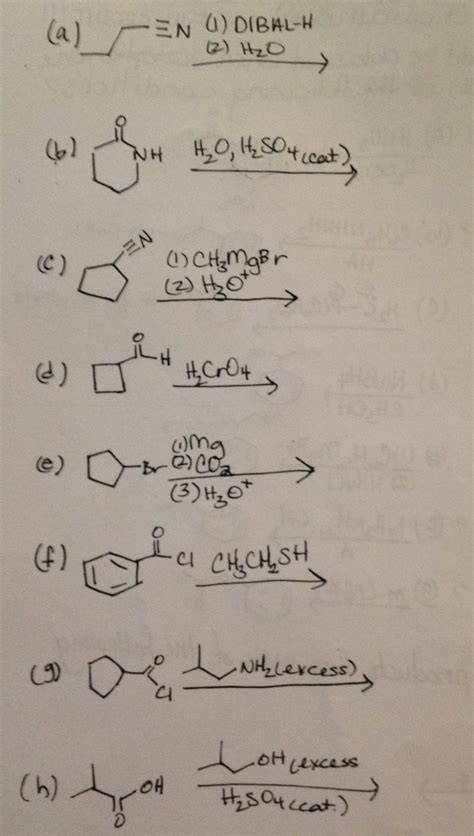 (a) ≡N (1) DIBAL-H
(2) H₂O
(b) O NH H₂O, H₂SO₄ (cat.)
(c) ≡N (1) CH₃MgBr
(2) H₃O⁺
(d) O H H₂CrO₄
(e) Br (1) Mg
(2) CO₂
(3) H₃O⁺
(f) O Cl CH₃CH₂SH
(g) O Cl NH₂ (excess)
(h) O OH OH (excess
H₂SO₄ (cat.)